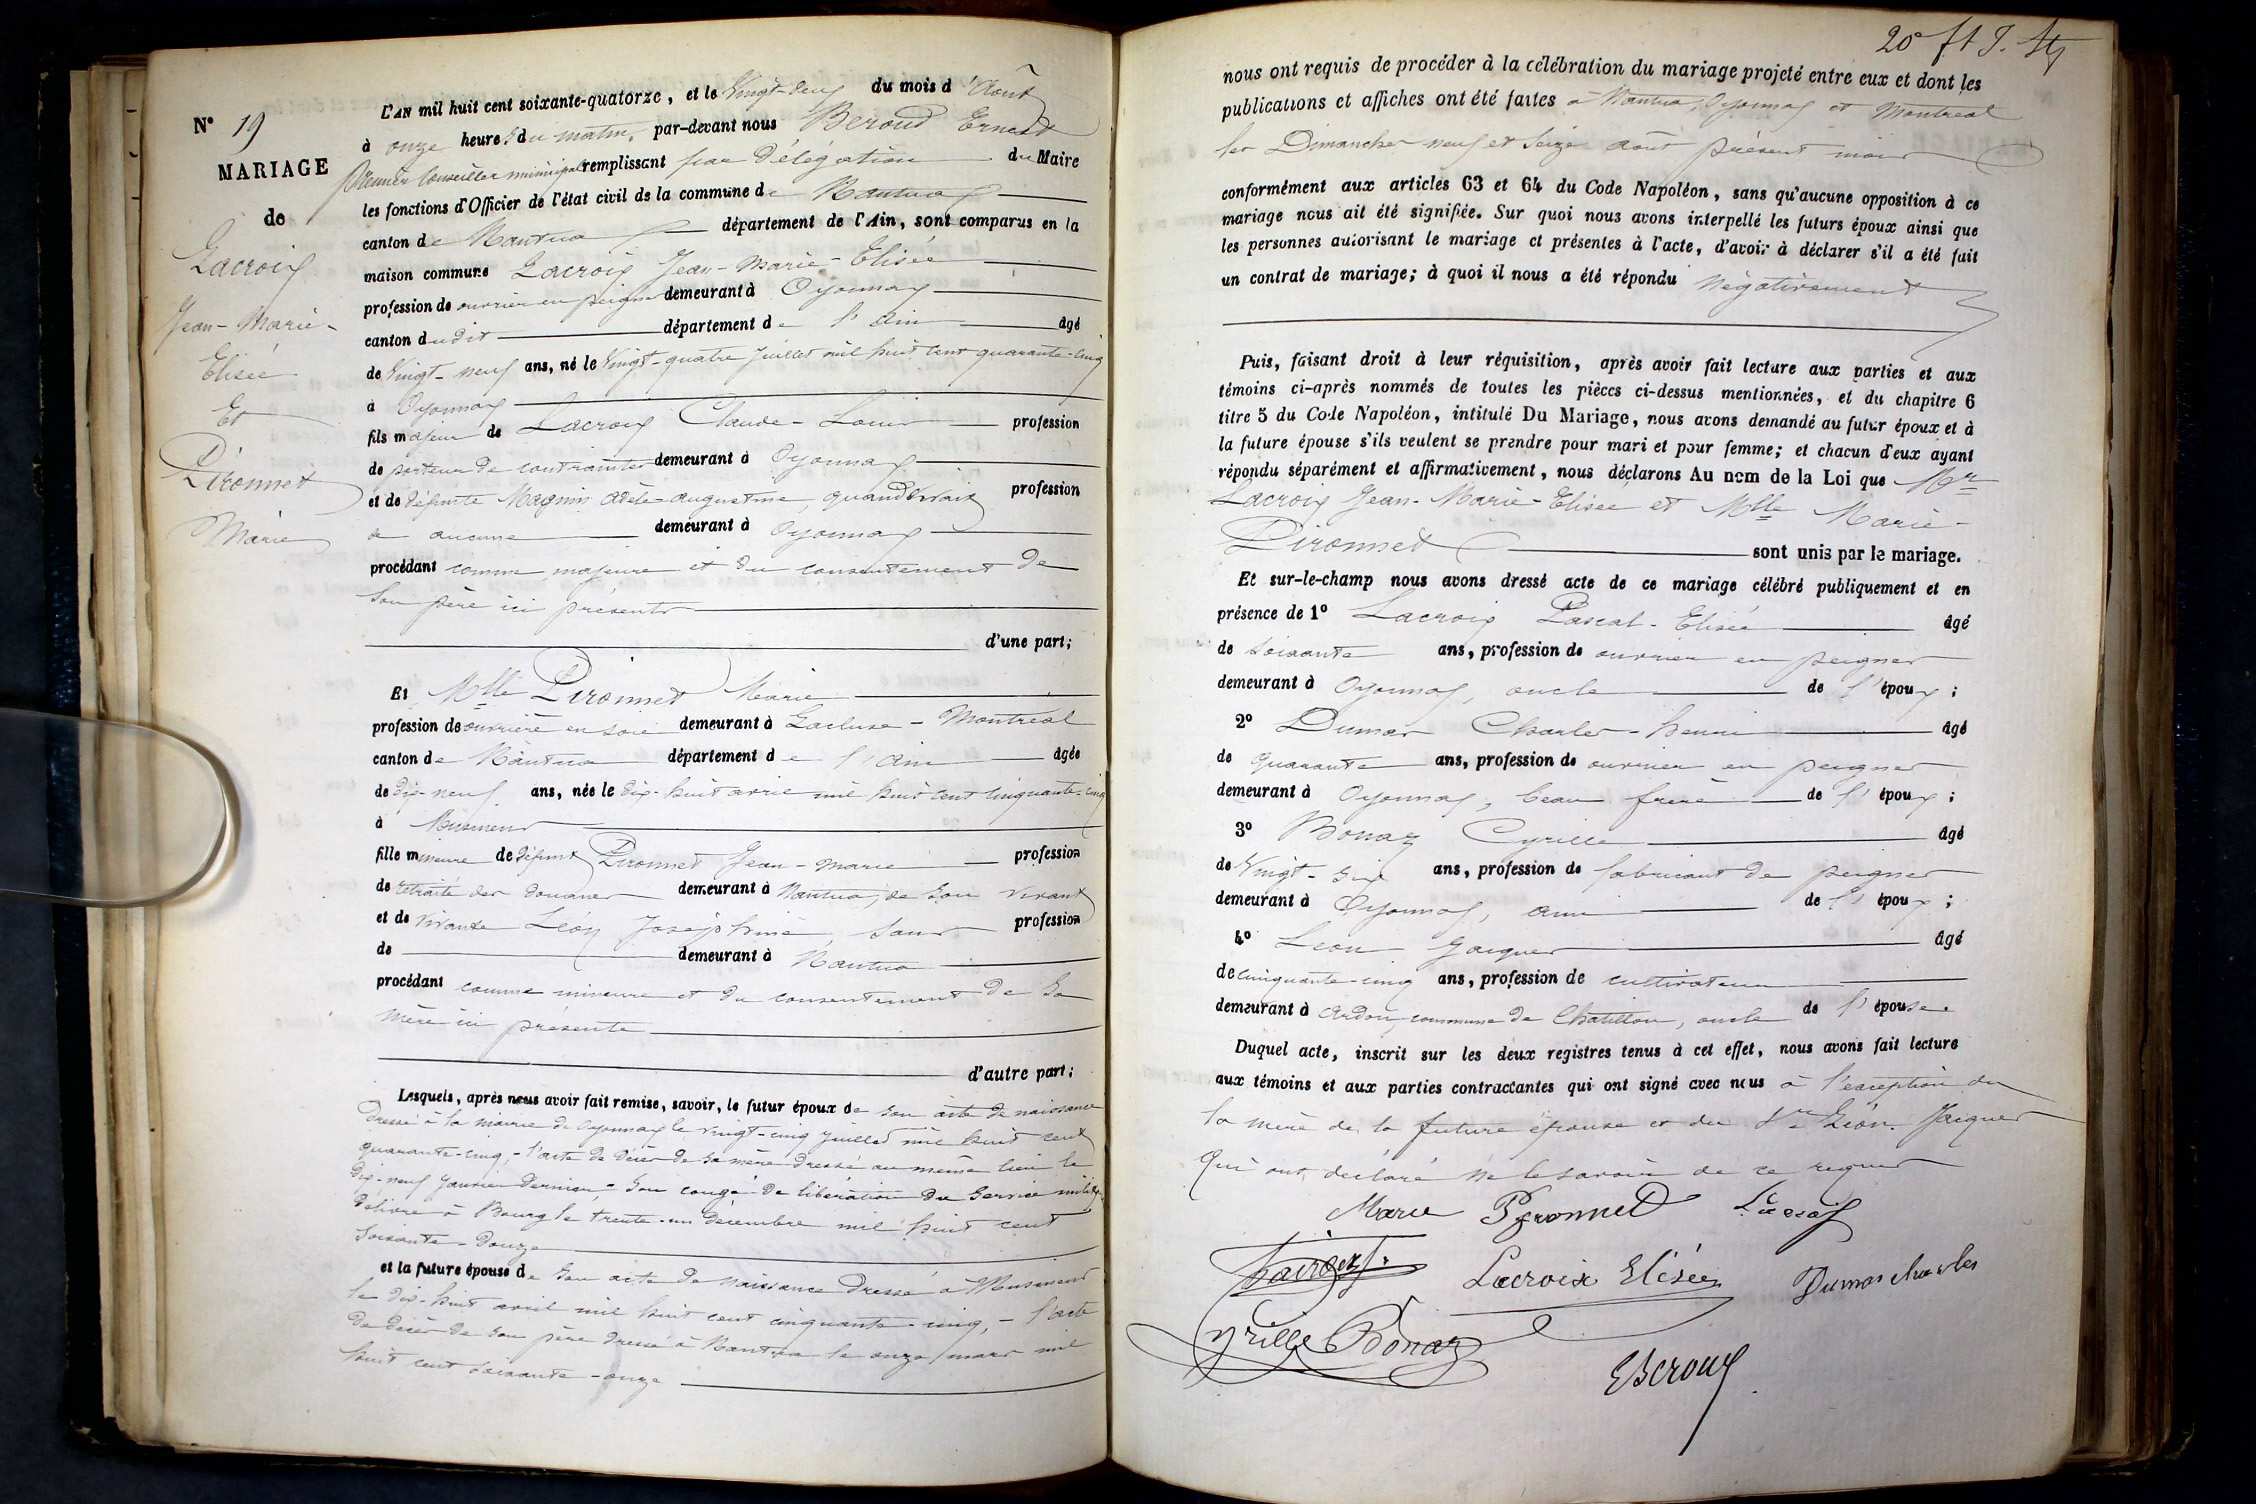 N° 19
MARIAGE
de
Lacroix
Jean-Marie-
Elisée
Et
Pironnet
Marie
L'AN mil huit cent soixante-quatorze, et le Vingt-deux du mois d'Août
à onze heures du matin, par-devant nous Beroud Ernest
premier Conseiller municipal remplissant par Délégation du Maire
les fonctions d'Officier de l'état civil de la commune de Nantua
canton de Nantua département de l'Ain, sont comparus en la
maison commune Lacroix Jean-Marie-Elisée
profession de ouvrier en peignes demeurant à Oyonnax
canton dudit département de l'Ain âgé
de Vingt-neuf ans, né le Vingt-quatre Juillet mil huit cent quarante-cinq
à Oyonnax
fils majeur de Lacroix Claude-Louis profession
de porteur de contraintes demeurant à Oyonnax
et de défunte Magnin Adèle-Augustine, quand vivait profession
de aucune demeurant à Oyonnax
procédant comme majeure et du consentement de
son père ici présents
d'une part;
Et Mlle Pironnet Marie
profession de ouvrière en soie demeurant à Lacluse-Montréal
canton de Nantua département de l'Ain âgée
de dix-neuf ans, née le dix-huit avril mil huit cent cinquante-cinq
à Musinens
fille mineure de défunt Pironnet Jean-Marie profession
de retraité des douanes demeurant à Nantua, de son vivant
et de vivante Léon Joséphine, sans profession
de demeurant à Nantua
procédant comme mineure et du consentement de sa
mère ici présente
d'autre part;
Lesquels, après nous avoir fait remise, savoir, le futur époux de son acte de naissance
dressé à la mairie de Oyonnax le vingt-cinq Juillet mil huit cent
quarante-cinq,- l'acte de décès de sa mère dressé au même lieu le
dix-neuf Janvier dernier,- son congé de libération du service
délivré à Bourg le trente-un décembre mil huit cent
soixante-douze
et la future épouse de son acte de naissance dressé à Musinens
le dix-huit avril mil huit cent cinquante-cinq,- l'acte
de décès de son père dressé à Nantua le onze mars mil
huit cent soixante-onze
20e ft
nous ont requis de procéder à la célébration du mariage projeté entre eux et dont les
publications et affiches ont été faites à Nantua, Oyonnax et Montréal
les Dimanches neuf et Seize août présent mois
conformément aux articles 63 et 64 du Code Napoléon, sans qu'aucune opposition à ce
mariage nous ait été signifiée. Sur quoi nous avons interpellé les futurs époux ainsi que
les personnes autorisant le mariage et présentes à l'acte, d'avoir à déclarer s'il a été fait
un contrat de mariage; à quoi il nous a été répondu Négativement
Puis, faisant droit à leur réquisition, après avoir fait lecture aux parties et aux
témoins ci-après nommés de toutes les pièces ci-dessus mentionnées, et du chapitre 6
titre 5 du Code Napoléon, intitulé Du Mariage, nous avons demandé au futur époux et à
la future épouse s'ils veulent se prendre pour mari et pour femme; et chacun d'eux ayant
répondu séparément et affirmativement, nous déclarons Au nom de la Loi que Mr
Lacroix Jean-Marie-Elisée et Mlle Marie-
Pironnet sont unis par le mariage.
Et sur-le-champ nous avons dressé acte de ce mariage célébré publiquement et en
présence de 1° Lacroix Pascal-Elisée âgé
de soixante ans, profession de ouvrier en peignes
demeurant à Oyonnax, oncle de l'époux;
2° Dumas Charles-henri âgé
de quarante ans, profession de ouvrier en peignes
demeurant à Oyonnax, beau frère de l'époux;
3° Bonaz Cyrille âgé
de Vingt-six ans, profession de fabricant de peignes
demeurant à Oyonnax, ami de l'époux;
4° Léon Jacques âgé
de cinquante-cinq ans, profession de cultivateur
demeurant à Ardon commune de Chatillon, oncle de l'épouse.
Duquel acte, inscrit sur les deux registres tenus à cet effet, nous avons fait lecture
aux témoins et aux parties contractantes qui ont signé avec nous à l'exception de
la mère de la future épouse et du Sr Léon Jacques
qui ont déclaré ne le savoir de ce requis
Marie Pyronnet
Lacroix Elisée Dumas charles
Cyrille Bonaz
E Beroud